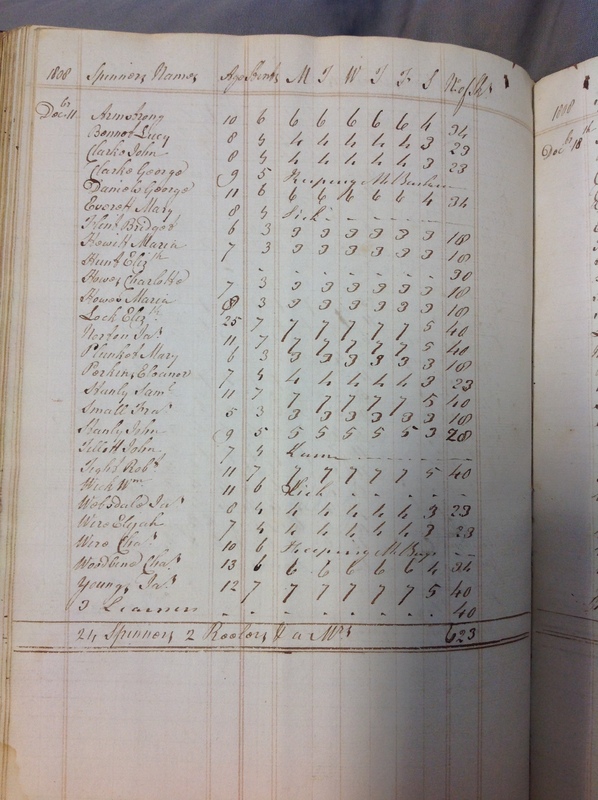 1808 Spinners Names Age Stints M T W T F S No of Sks
Decbr 11 Armstrong 10 6 6 6 6 6 6 4 34
Bonnet Lucy 8 4 4 4 4 4 4 3 23
Clarke John 8 4 4 4 4 4 4 3 23
Clarke George 9 5 Keeping Mr
Daniels George 11 6 6 6 6 6 6 4 34
Everett Mary 8 4 Sick - - - - -
Flint Bridget 6 3 3 3 3 3 3 3 18
Howitt Maria 7 3 3 3 3 3 3 3 18
Hunt Elizth - - - - - - 30
Howes Charlotte 7 3 3 3 3 3 3 3 18
Howes Maria 8 3 3 3 3 3 3 3 18
Lock Elizth 25 7 7 7 7 7 7 5 40
Norton Jas 11 7 7 7 7 7 7 5 40
Plunket Mary 6 3 3 3 3 3 3 3 18
Perkins Eleanor 7 4 4 4 4 4 4 3 23
Stanly Saml 11 7 7 7 7 7 7 5 40
Small Fras 5 3 3 3 3 3 3 3 18
Stanly John 9 5 5 5 5 5 5 3 28
Tillett John 7 4 Lame
Tight Robt 11 7 7 7 7 7 7 5 40
Wick Wm 11 6 Sick - - - - -
Websdale Jas 8 4 4 4 4 4 4 3 23
Wire Elijah 7 4 4 4 4 4 4 3 23
Wire Chas 10 6 Keeping Mr - -
Woodbine Chas 13 6 6 6 6 6 6 4 34
Youngs Jas 12 7 7 7 7 7 7 5 40
3 Learners - - - - - - - - 40
24 Spinners 2 Reelers & a Mrs 623
1808
Decbr 18th